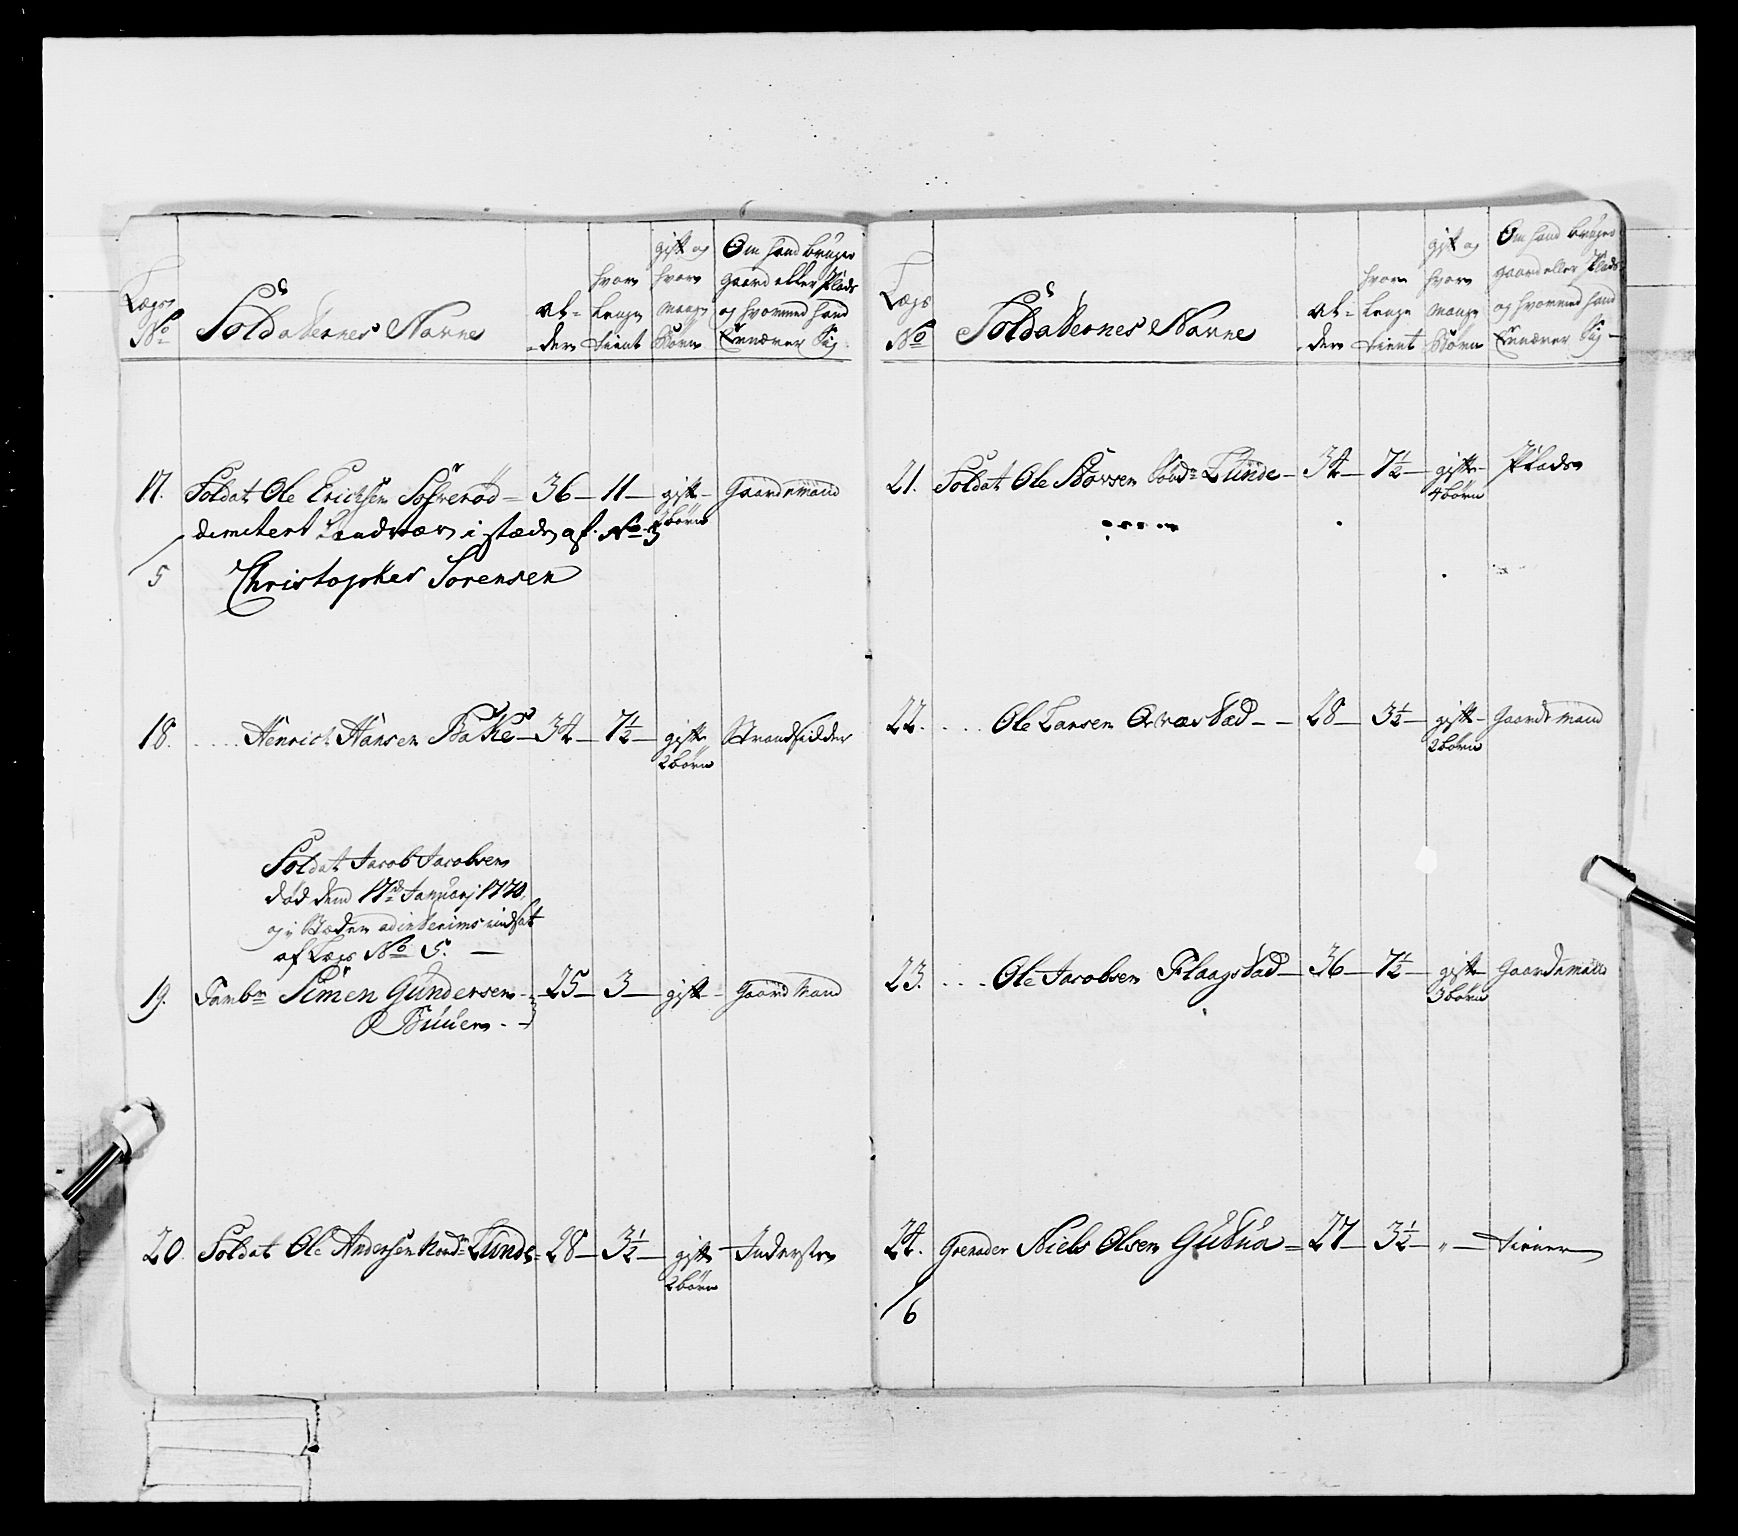 Lægs No
Soldaternes Navne
Al-
der
hvor
Længe
tient
gift og
hvor
mange
Børn
Om hand bruger
gaard eller Plads
og hvormed hand
Ernærer Sig
17. Soldat Ole Erichsen Sofverød - 36 - 11 - gift - Gaardemand
børn
dimitert Landvær i stæden af No 5
5 Christopher Sørensen
18. .... Henrich Hansen Bakke - 34 - 7½ - gift Strandsidder
2 børn
Soldat Jacob Jacobsen
død dend 17de Januarj 1770.
og i Stæden ad interims indsat
af Lægs No 5. -
19. Tambr Simen Gundersen - 25 - 3 - gift - Gaard Mand
Buuen - -
20. Soldat Ole Andersen Nordr Lunde - 28 - 3½ - gift Inderste
2 børn
Lægs No
Soldaternes Navne
Al-
der
hvor
Længe
tient
gift og
hvor
mange
Børn
Om hand bruger
gaard eller Plads
og hvormed hand
Ernærer Sig -
21. Soldat Ole Størsen Lunde - 34 - 7½ - gift - Plads
4 børn
22. .... Ole Larsen - - 28 - 3½ - gift - Gaardemand
2 børn
23. .... Ole Jacobsen Flaagstad - 36 - 7½ - gift Gaardemand
3 børn
24. Grenader Niels Olsen - 27 - 3½ - " - tiener
6